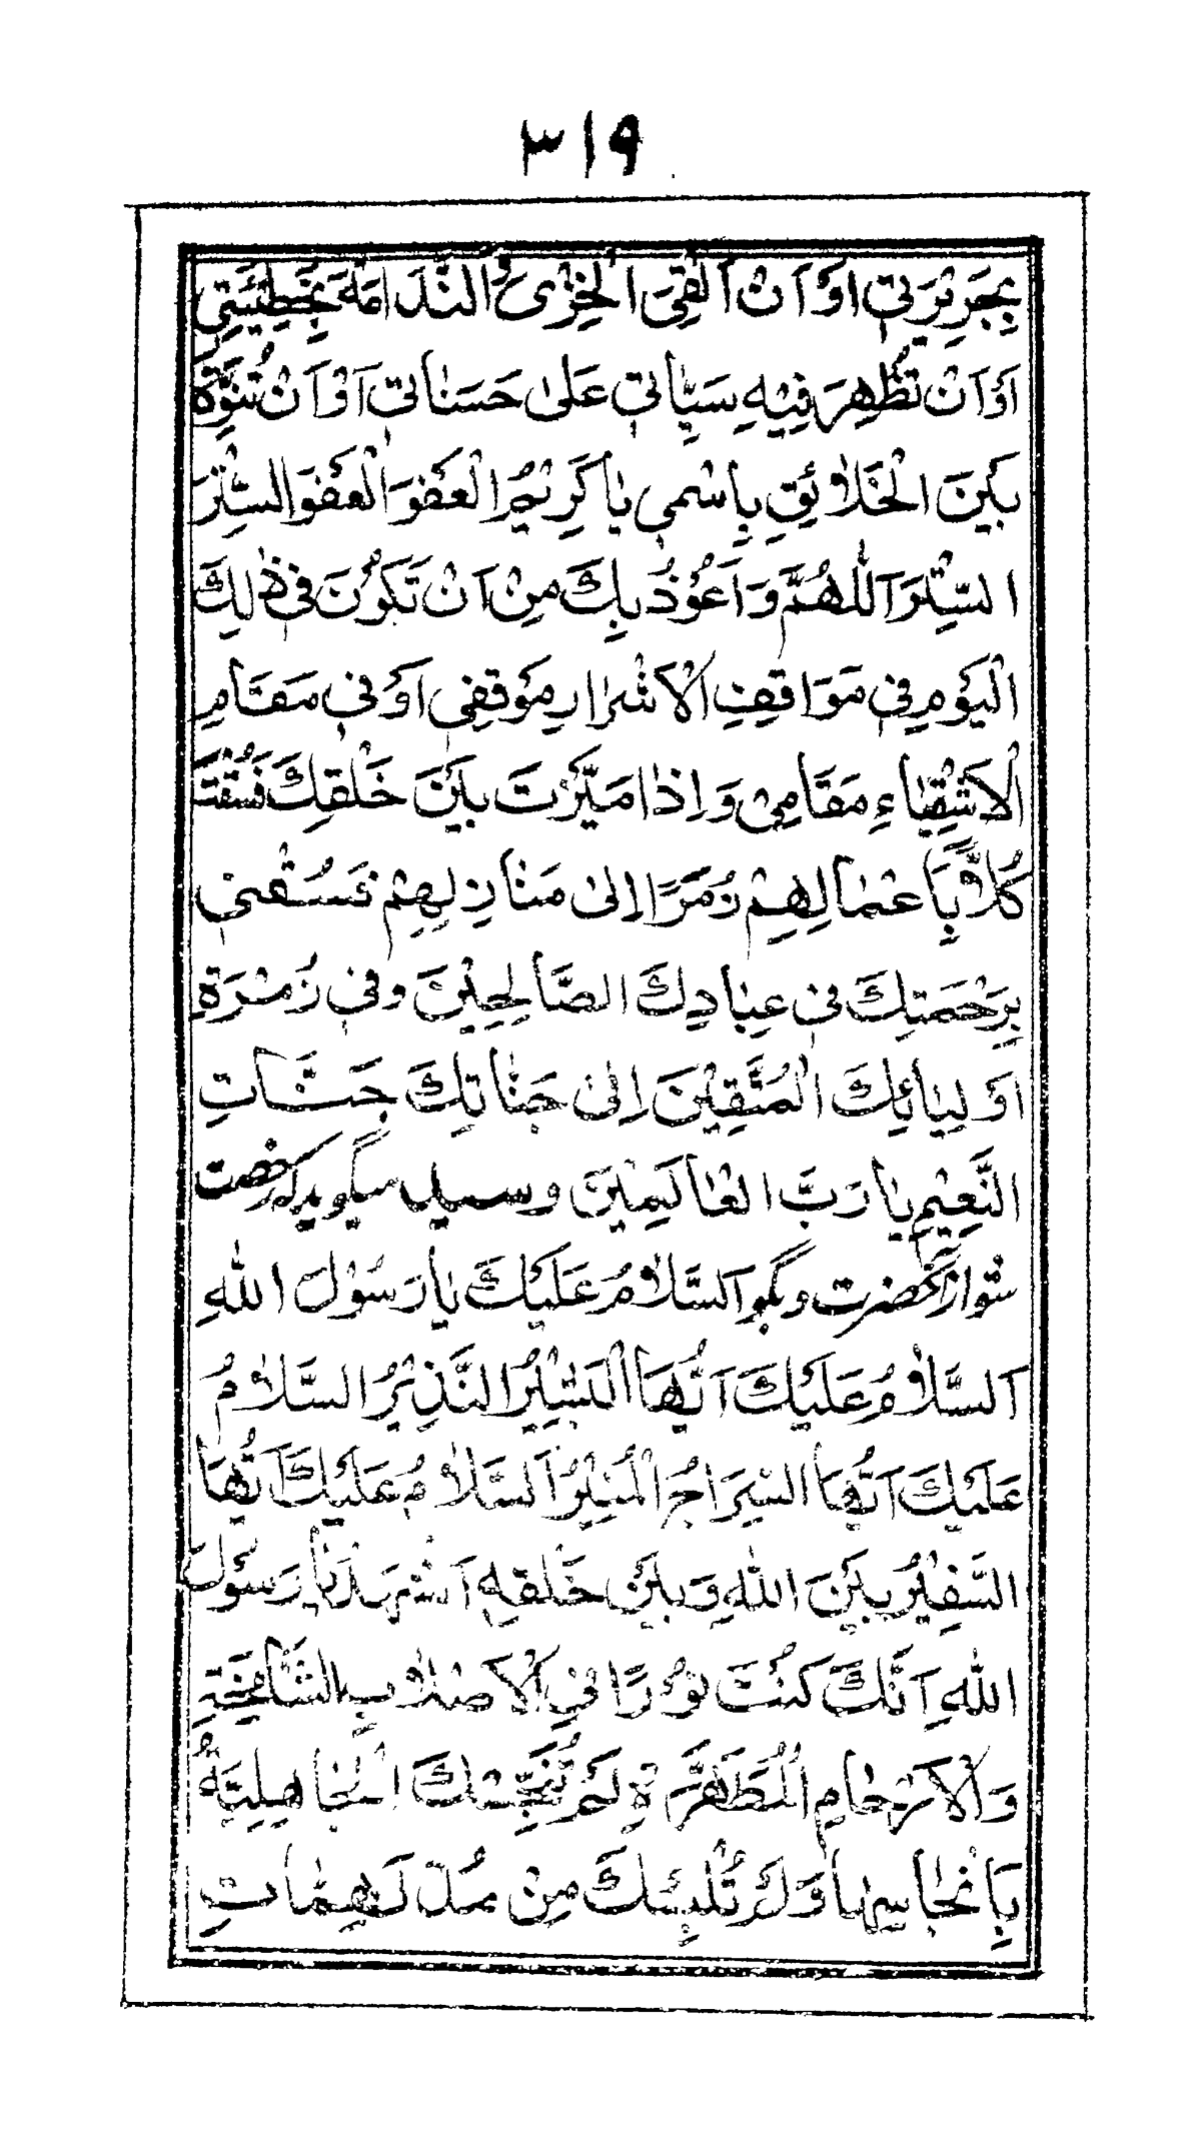 ٣١٩
بِجَرِيْرَتِي اَوْ اَنْ اَلْقَى الْخِزْىَ وَالنَّدَامَةَ بِخَطِيْئَتِي
اَوْ اَنْ تُظْهِرَ فِيْهِ سَيِّاٰتِي عَلىٰ حَسَنٰاتِي اَوْ اَنْ تُنَوِّهَ
بَيْنَ الْخَلاٰئِقِ بِاسْمِي يٰا كَرِيْمُ الْعَفْوَ الْعَفْوَ السِّتْرَ
السِّتْرَ اَللّٰهُمَّ وَ اَعُوْذُ بِكَ مِنْ اَنْ تَكُوْنَ فِي ذٰلِكَ
الْيَوْمِ فِي مَوَاقِفِ الْاَشْرٰارِ مَوْقِفِي اَوْ فِي مَقَامِ
الْاَشْقِيٰاءِ مَقَامِيْ وَ اِذٰا مَيَّزْتَ بَيْنَ خَلْقِكَ فَسُقْتَ
كُلاًّ بِاَعْمٰالِهِمْ زُمَرًا اِلىٰ مَنٰازِلِهِمْ فَسُقْنِي
بِرَحْمَتِكَ فِي عِبٰادِكَ الصَّالِحِيْنَ وَ فِي زُمْرَةِ
اَوْلِيٰائِكَ الْمُتَّقِيْنَ اِلىٰ جَنّٰاتِكَ جَنَّاتِ
النَّعِيْمِ يٰا رَبَّ الْعٰالَمِيْنَ و سيد ميگويد كه رخصت
شو از آنحضرت و بگو اَلسَّلاٰمُ عَلَيْكَ يٰا رَسُوْلَ اللهِ
اَلسَّلاٰمُ عَلَيْكَ اَيُّهَا الْبَشِيْرُ النَّذِيْرُ السَّلاٰمُ
عَلَيْكَ اَيُّهَا السِّرَاجُ الْمُنِيْرُ اَلسَّلاٰمُ عَلَيْكَ اَيُّهَا
السَّفِيْرُ بَيْنَ اللهِ وَ بَيْنَ خَلْقِهِ اَشْهَدُ يٰا رَسُوْلَ
اللهِ اَنَّكَ كُنْتَ نُوْرًا فِي الْاَصْلاٰبِ الشَّامِخَةِ
وَ الْاَرْحٰامِ الْمُطَهَّرَةِ لَمْ تُنَجِّسْكَ الْجٰاهِلِيَّةُ
بِاَنْجٰاسِهٰا وَ لَمْ تُلْبِسْكَ مِنْ مُدْلَهِمّٰاتِ